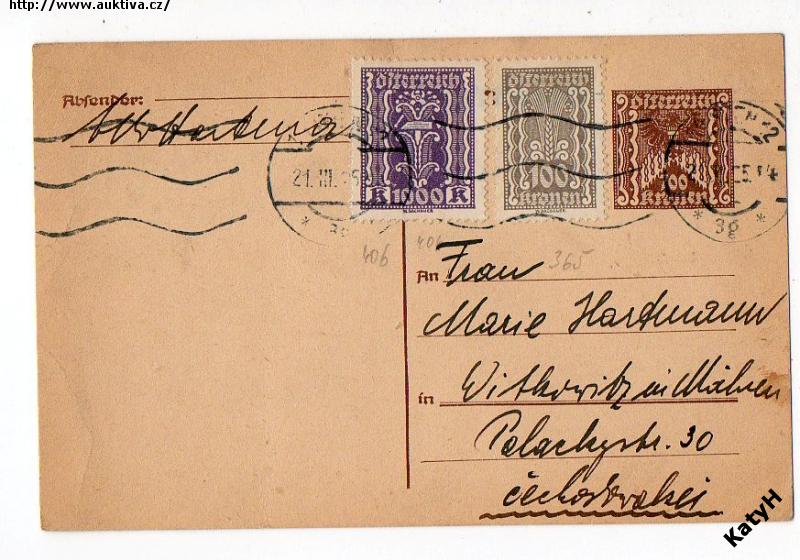 http://www.auktiva.cz/
Absender:
Hartmann
Österreich
1000
K K
Österreich
100
Kronen
Österreich
Kronen
21. III. 25
* 3g *
406
406
365
An Frau
Marie Hartmann
in Witkowitz in Mähren
Palackystr. 30
Čechoslovakei
KatyH